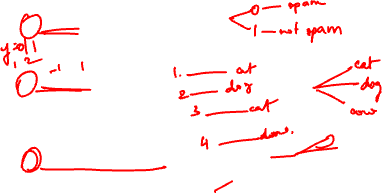 0 - spam
1 - not spam
y=0 1
1 2
-1 1
1. cat
2 dog
3 cat
4
cat
dog
cow